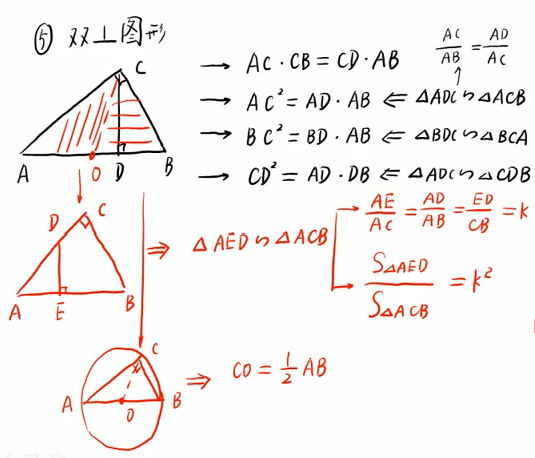 ⑤ 双⊥图形
AC/AB = AD/AC
C
A O D B
→ AC·CB = CD·AB
→ AC² = AD·AB ⇐ △ADC∽△ACB
→ BC² = BD·AB ⇐ △BDC∽△BCA
→ CD² = AD·DB ⇐ △ADC∽△CDB
D C
A E B
⇒ △AED∽△ACB
→ AE/AC = AD/AB = ED/CB = k
→ S△AED/S△ACB = k²
C
A O B
⇒ CO = 1/2 AB